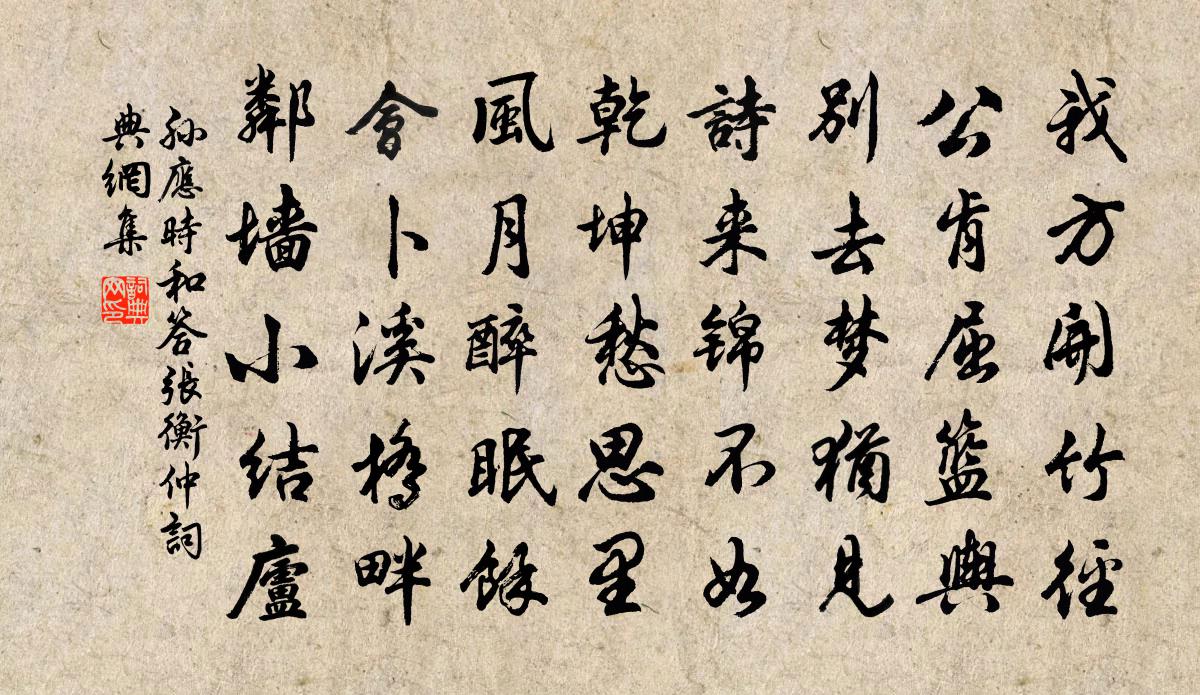 我方開竹徑
公肯屈籃輿
别去梦猶見
詩来锦不如
乾坤愁思里
風月醉眠餘
會卜溪橋畔
鄰墙小结廬
孙應時和答張衡仲詞
典網集
詞典網印